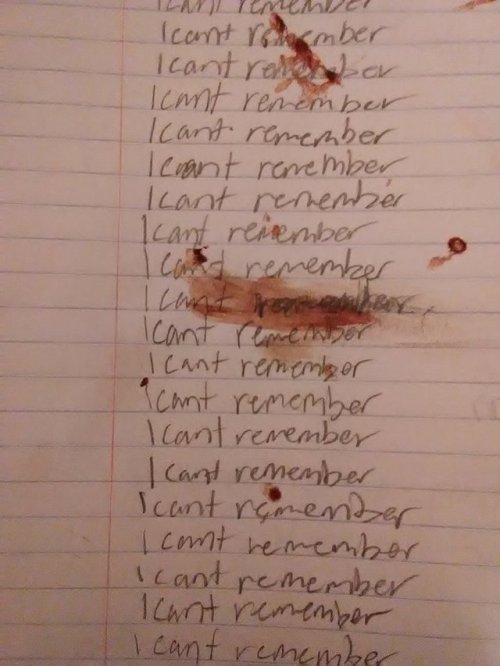 I cant remember
I cant remember
I cant remember
I cant remember
I cant remember
I cant remember
I cant remember
I cant remember
I cant remember
I cant remember
I cant remember
I cant remember
I cant remember
I cant remember
I cant remember
I cant remember
I cant remember
I cant remember
I cant remember
I cant remember